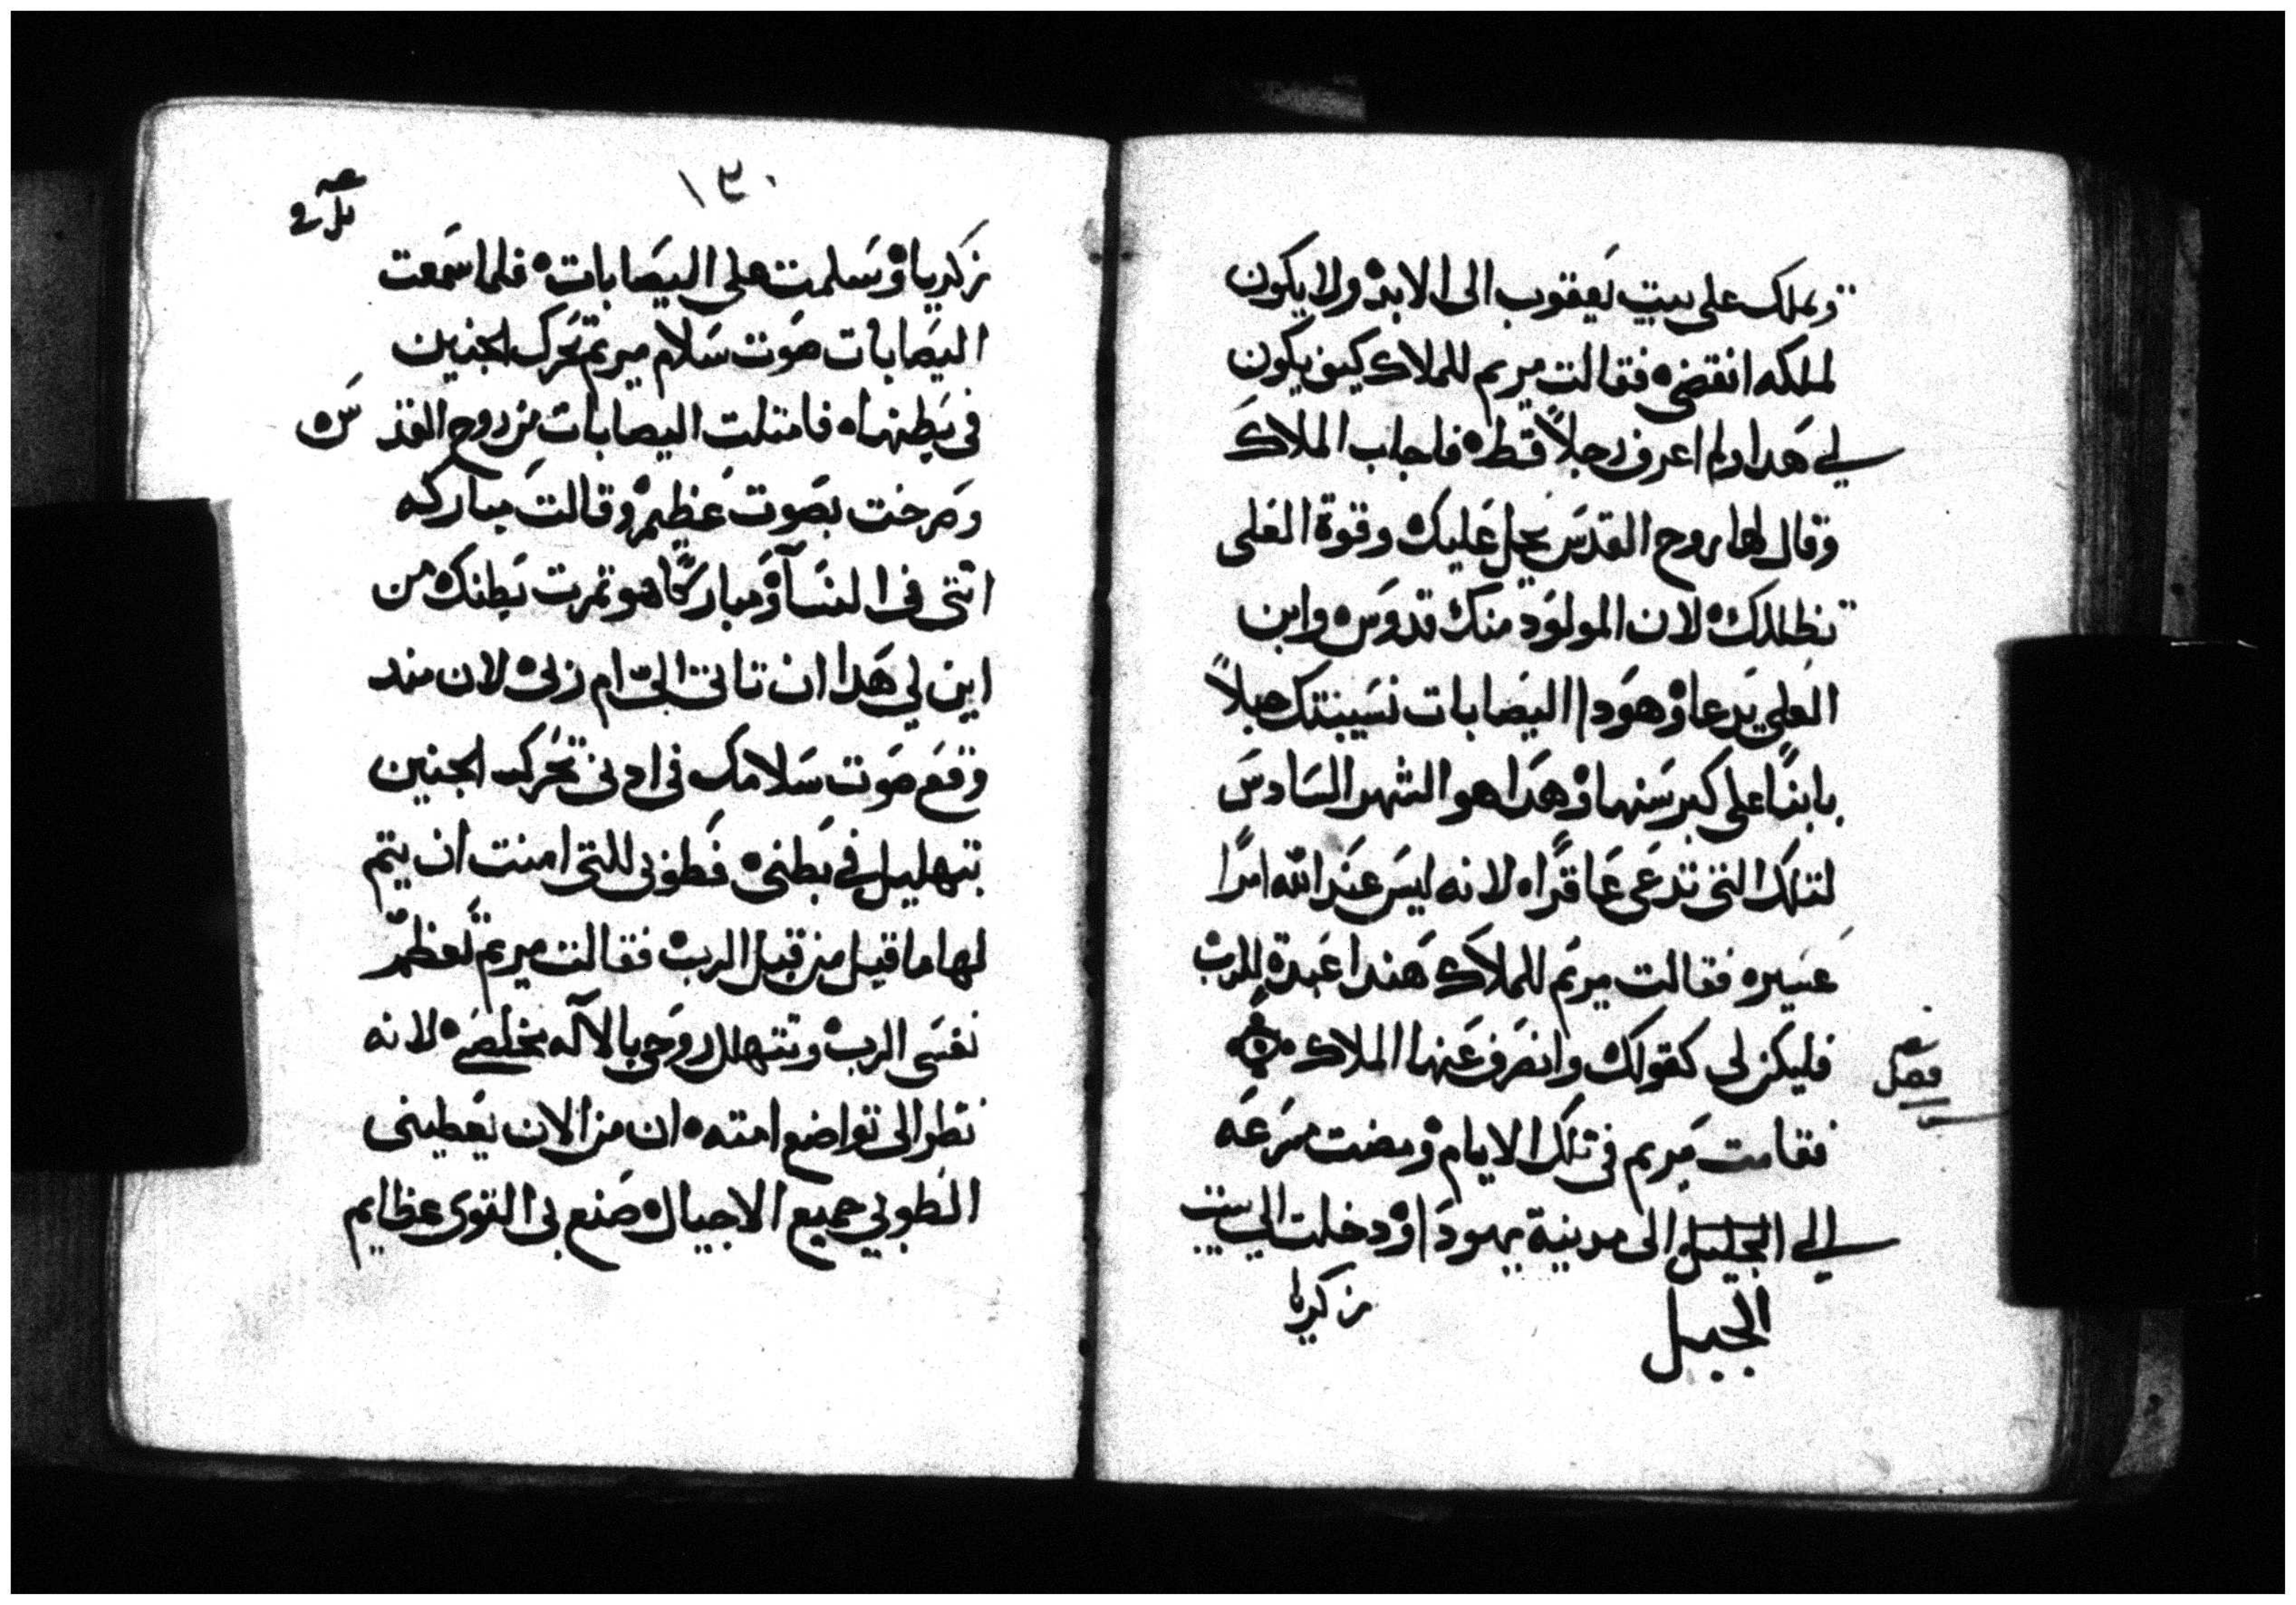 ويملك على بيت يعقوب الى الابد ٥ ولا يكون
لملكه انقضى ٥ فقالت مريم للملاك كيف يكون
لي هدا ولم اعرف رجلاً قط ٥ فاجاب الملاك
وقال لها روح القدس يحل عليك ٥ وقوة العلى
تظللك ٥ لان المولود منك قدوس ٥ وابن
العلي يدعا ٥ وهودا اليصابات نسيبتك حبلاً
بابناً على كبر سنها ٥ وهدا هو الشهر السادس
لتلك التى تدعى عاقراً ٥ لانه ليس عند الله امراً
عسير ٥ فقالت مريم للملاك هندا عبدة للرب
فليكن لى كقولك وانصرف عنها الملاك ٥
فصل
فقامت مريم في تلك الايام ٥ ومضت مسرعه
الي الجليل الى مدينة يهودا ٥ ودخلت الي بيت
الجبل
زكريا
١٣٠
زكريا ٥ وسلمت على اليصابات ٥ فلما سمعت
اليصابات صوت سلام مريم تحرك الجنين
فى بطنها ٥ فامتلت اليصابات من روح القدس ٥
وصرخت بصوت عظيم ٥ وقالت مباركه
انتى فى النسآ ٥ ومباركاً هو تمرت بطنك ٥ من
اين لي هدا ان تاتى الىّ ام ربى ٥ لان مند
وقع صوت سلامك فى ادنى تحرك الجنين
بتهليل في بطنى ٥ فطوبى للتى امنت ان يتم
لها ما قيل من قبل الرب ٥ فقالت مريم تعظم
نفسى الرب ٥ وتتهلل روحى بالآله مخلصى ٥ لانه
نظر الى تواضع امته ٥ ان من الان يعطينى
الطوبي جميع الاجيال ٥ صنع بى القوى عظايم